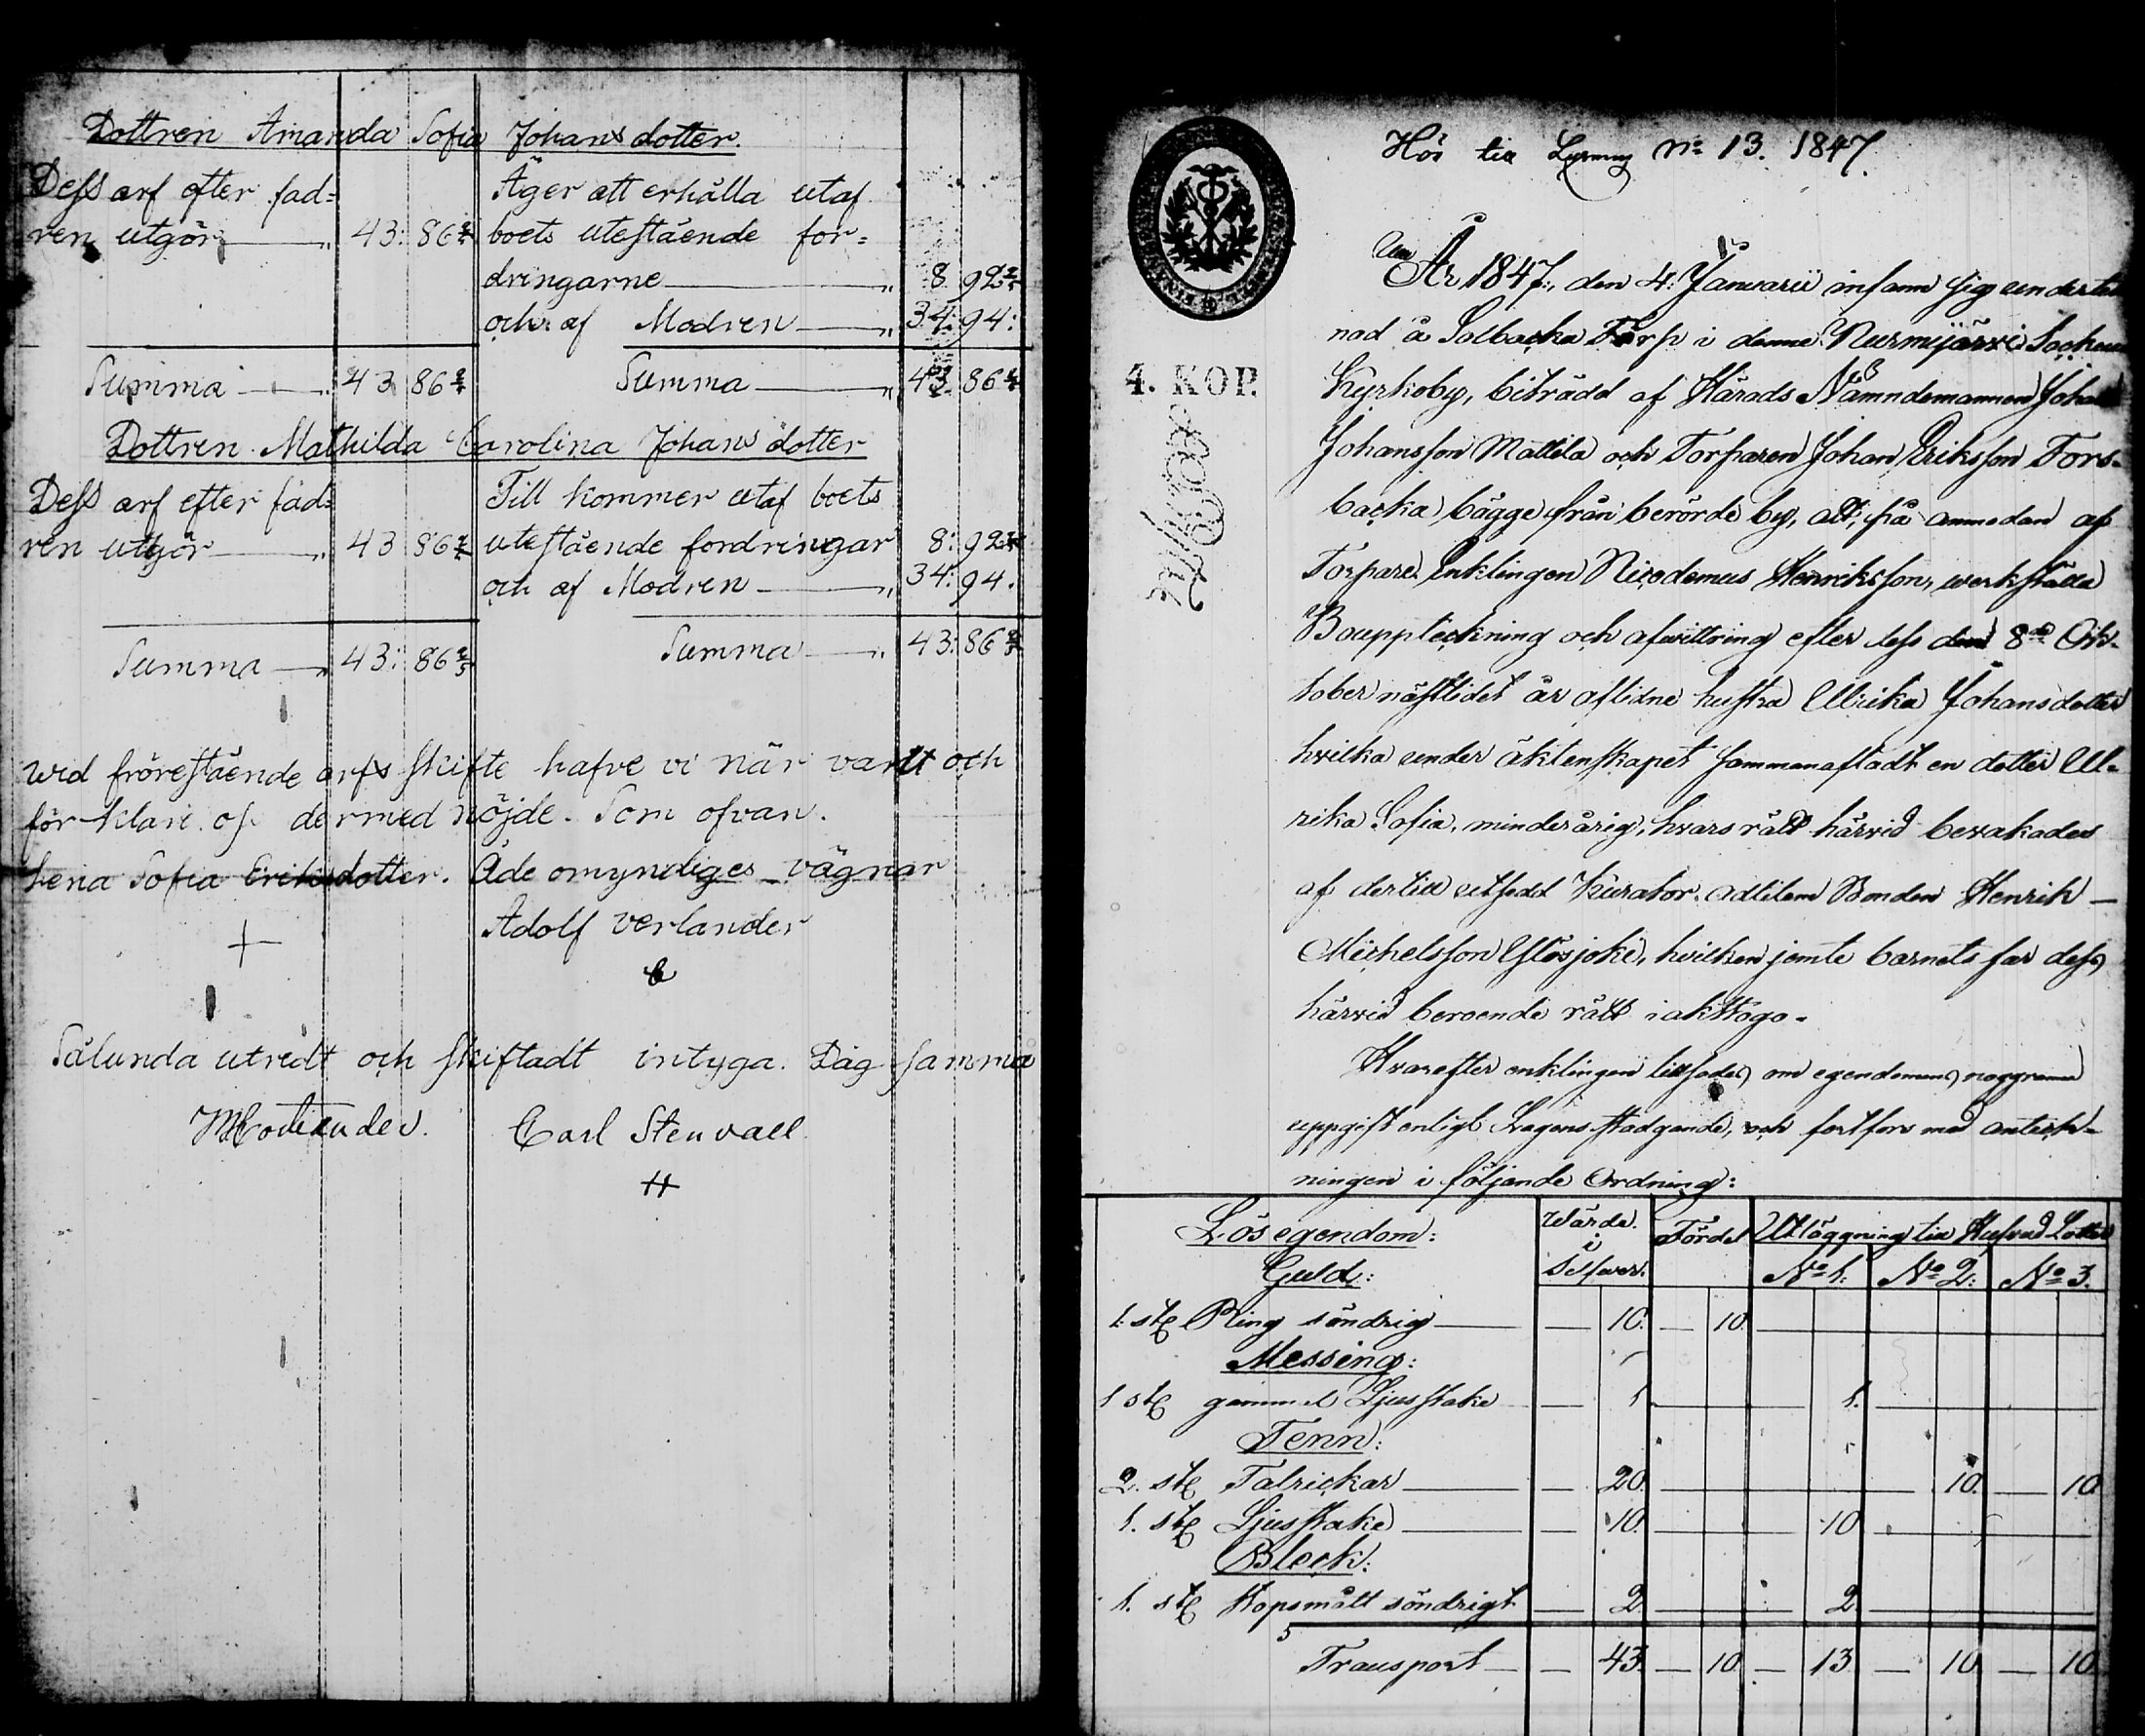 Dottren Amanda Sofia Johansdotter.
Dess arf efter fad=
ren utgör 43: 86 2/5
Äger att erhålla utaf
boets utestående for=
dringarne 8 92 2/5
och af Modren 34: 94:
Summa 43 86 2/5 Summa 43 86 2/5
Dottren Mathilda Carolina Johansdotter
Dess arf efter fad=
ren utgör 43 86 2/5
Till kommer utaf boets
utestående fordringar 8: 92 2/5
och af Modren 34: 94.
Summa 43: 86 2/5 Summa 43: 86 2/5
wid förestående arfs skifte hafve vi när varit och
för klare os dermed nöjde. Som ofvan.
Lena Sofia Eriksdotter. Å de omyndiges vägnar
Adolf verlander
Sålunda utredt och skiftadt intyga. Dag samma
Carl Stenvall
Hör till № 13. 1847.
4. KOP.
År 1847, den 4: Januarii infann sig underteck
nad å Solbacka Torp i denne Nurmijärvi Sockens
Kyrkoby, biträdd af Härads Nämndemannen Johan
Johansson Mattila och Torparen Johan Eriksson Fors-
backa bägge från berörde by, att, på anmodan af
Torpare Enklingen Nicodemus Henriksson, werkställa
Bouppteckning och afwittring efter dess den 8de Ok-
tober nästlidet år aflidne hustru Ulrika Johansdotter
hvilka under äktenskapet sammanaflat en dotter Ul-
rika Sofia, minderårig, hvars rätt härvid bevakades
af dertill utsedd Kurator adlitem Bonden Henrik
Michelsson Ylösjoki, hvilken jemte barnets far dess
härvid beroende rätt iakttogo.
Hvarefter enklingen tillsades om egendomens noggranna
uppgift enligt Lagens stadgande, och fortfors med anteck-
ningen i följande Ordning:
Lösegendom: Wärde i Silfver. Fördel Utläggning till Hufvud Lotter
Guld: № 1. № 2: № 3.
1. st Ring söndrig 10. 10.
Messing:
1 st gammal Ljusstake 1 1.
Tenn:
2. st Talrickar 20. 10. 10
1. st Ljusstake 10. 10
Bleck:
1. st Kopsmått söndrigt 2 2
Transport 43. 10. 13 10 10